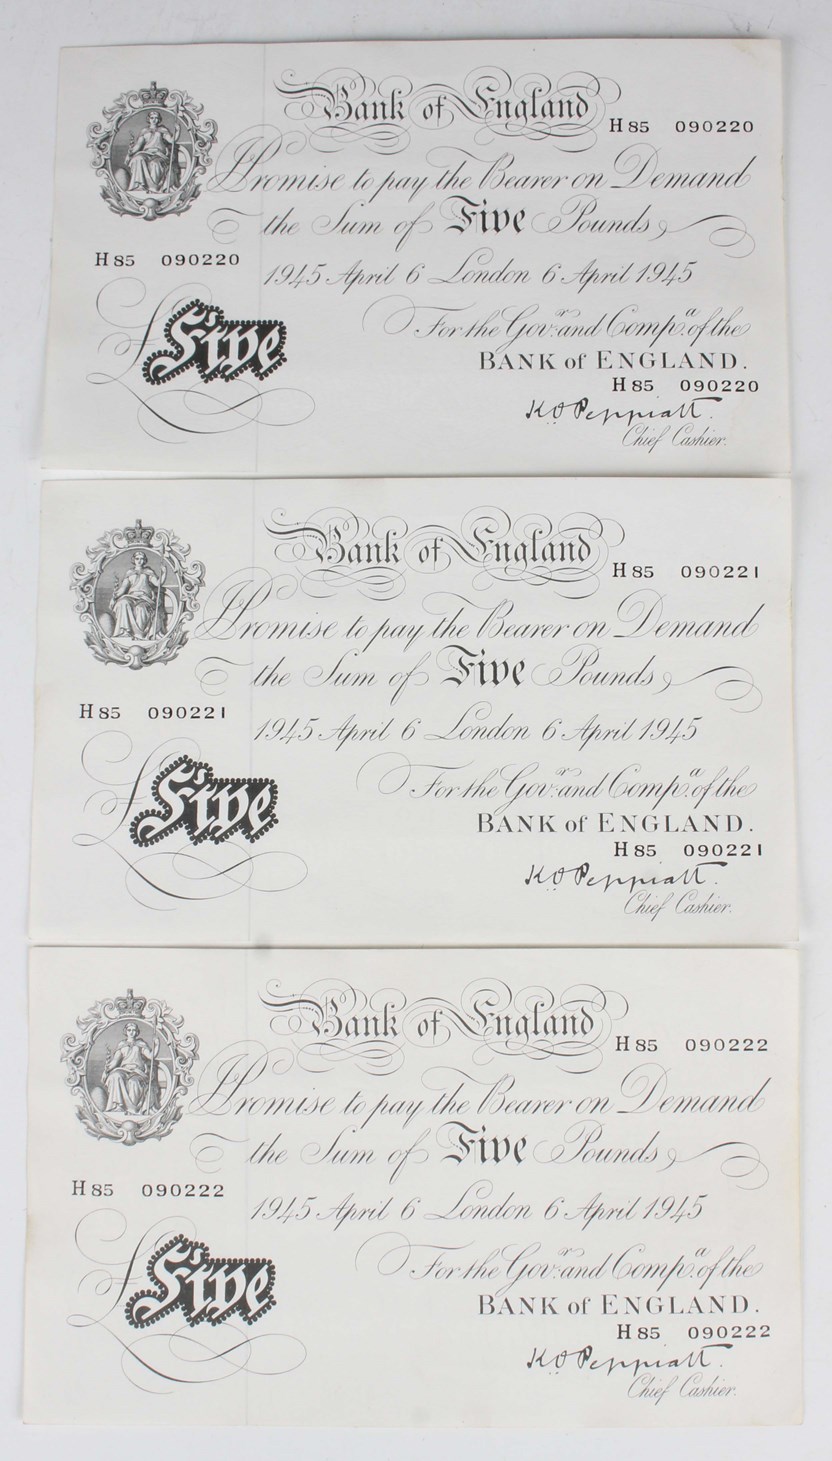 Bank of England
H85 090220
Promise to pay the Bearer on Demand
the Sum of Five Pounds
H85 090220
1945 April 6 London 6 April 1945
£ Five
For the Govr. and Compa. of the
BANK of ENGLAND.
H85 090220
K.O. Peppiatt.
Chief Cashier.
Bank of England
H85 090221
Promise to pay the Bearer on Demand
the Sum of Five Pounds
H85 090221
1945 April 6 London 6 April 1945
£ Five
For the Govr. and Compa. of the
BANK of ENGLAND.
H85 090221
K.O. Peppiatt.
Chief Cashier.
Bank of England
H85 090222
Promise to pay the Bearer on Demand
the Sum of Five Pounds
H85 090222
1945 April 6 London 6 April 1945
£ Five
For the Govr. and Compa. of the
BANK of ENGLAND.
H85 090222
K.O. Peppiatt.
Chief Cashier.